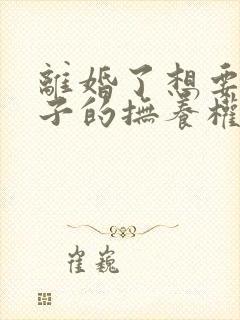 離婚了想要
子的撫養權
崔巍